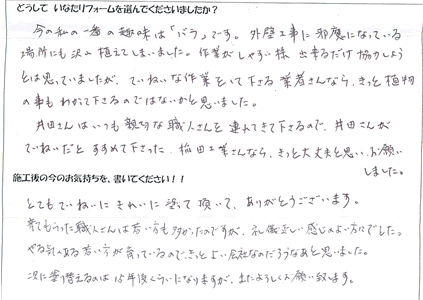 どうして いなたリフォームを選んでくださいましたか?
今の私の一番の趣味は「バラ」です。外壁工事に邪魔になっている
場所にも沢山植えてしまいました。作業がしやすい様 出来るだけ協力しよう
とは思っていましたが、ていねいな作業をして下さる業者さんなら、きっと植物
の事もわかって下さるのではないかと思いました。
井田さんはいつも親切な職人さんを連れてきて下さるので、井田さんが
ていねいだとすすめて下さった、稲田工業さんなら、きっと大丈夫と思い、お願い
しました。
施工後の今のお気持ちを、書いてください!!
とてもていねいにきれいに塗って頂いて、ありがとうございます。
来てもらった職人さんは若い方も多かったのですが、礼儀正しい感じのよい方々でした。
やる気のある若い方が育っているので、きっとよい会社なのだろうなあと思いました。
次に塗り替えるのは15年後くらいになりますが、またよろしくお願い致します。